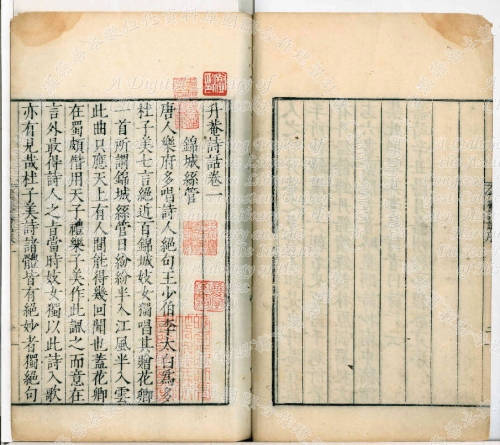 升菴詩話卷一
錦城絲管
唐人樂府多唱詩人絕句王少伯李太白爲多
杜子美七言絕近百錦城妓女獨唱其贈花卿
一首所謂錦城絲管日紛紛半入江風半入雲
此曲只應天上有人間能得幾回聞也蓋花卿
在蜀頗僭用天子禮樂子美作此諷之而意在
言外最得詩人之旨當時妓女獨以此詩入歌
亦有見哉杜子美詩諸體皆有絕妙者獨絕句